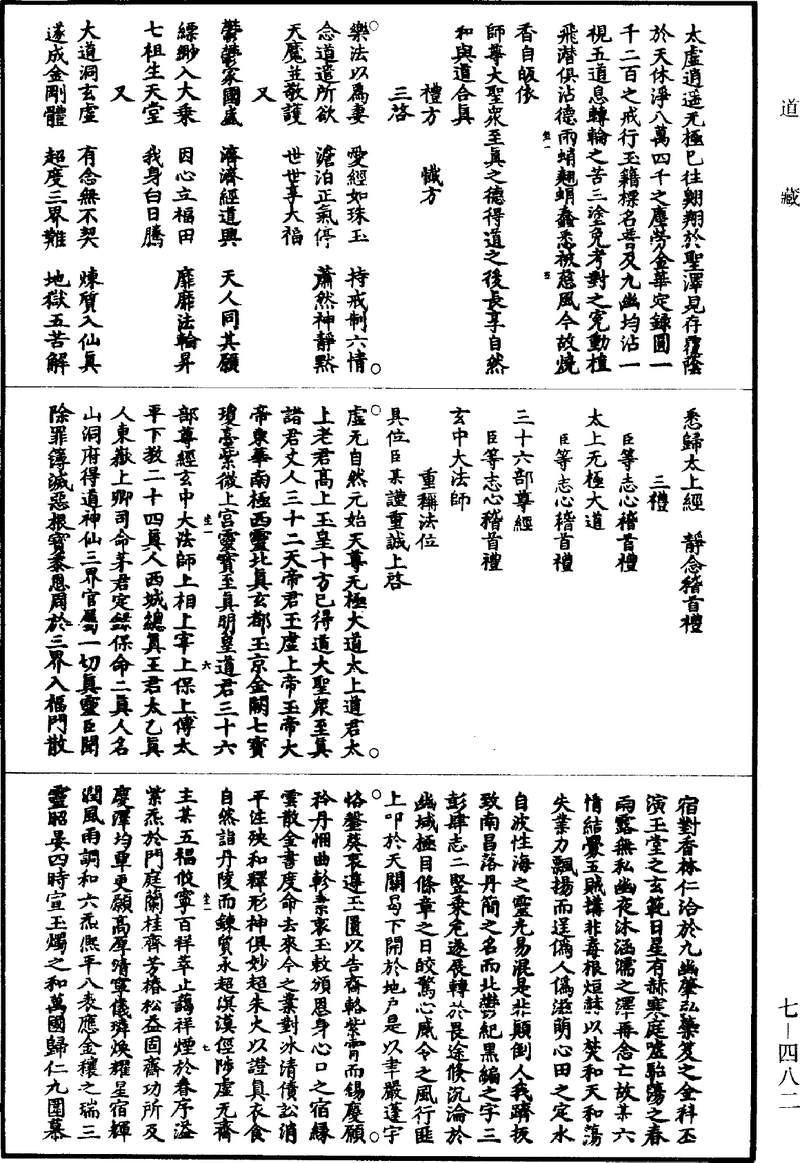 道藏
太虛逍遥无極已往翱翔於聖澤見存覆蔭
於天休淨八萬四千之塵勞金華定錄圓一
千二百之戒行玉籍標名普及九幽均沾一
視五道息轉輪之苦三塗免考對之寃動植
飛潛俱沾德雨蛸翹蜎蠢悉被慈風今故燒
香自皈依
師尊大聖衆至真之德得道之後長享自然
和與道合真
禮方 懺方
三啓
樂法以為妻 愛經如珠玉 持戒制六情
念道遣所欲 澹泊正氣停 蕭然神靜默
天魔並敬護 世世享大福
又
鬱鬱家國盛 濟濟經道興 天人同其願
縹緲入大乘 因心立福田 靡靡法輪昇
七祖生天堂 我身白日騰
又
大道洞玄虛 有念無不契 煉質入仙真
遂成金剛體 超度三界難 地獄五苦解
悉歸太上經 靜念稽首禮
三禮
臣等志心稽首禮
太上无極大道
臣等志心稽首禮
三十六部尊經
臣等志心稽首禮
玄中大法師
重稱法位
具位臣某謹重誠上啓
虛无自然元始天尊无極大道太上道君太
上老君高上玉皇十方已得道大聖衆至真
諸君丈人三十二天帝君玉虛上帝玉帝大
帝東華南極西靈北真玄都玉京金闕七寶
瓊臺紫微上宮靈寶至真明皇道君三十六
部尊經玄中大法師上相上宰上保上傅太
平下教二十四真人西城總真王君太乙真
人東嶽上卿司命茅君定錄保命二真人名
山洞府得道神仙三界官屬一切真靈臣聞
除罪簿滅惡根寶黍恩周於三界入福門散
宿對香林仁洽於九幽肇弘藥笈之金科丕
演玉堂之玄範日星有赫寒庭噓點蕩之春
雨露無私幽夜沐涵濡之澤再念亡故某六
情結釁五賊搆非毒根烜赫以焚和天和蕩
失業力飄揚而逞僞人僞滋萌心田之定水
自波性海之靈光易混是非顛倒人我躋扳
致南昌落丹簡之名而北酆紀黑編之字三
彭肆志二竪乘危遂展轉於畏途倏沉淪於
幽域極目條章之日皎驚心威令之風行匪
上叩於天關曷下開於地戶是以聿嚴蓬宇
恪罄葵衷遵玉匱以告齋輅紫霄而錫慶願
矜丹悃曲軫柔衷玉敕頒恩身心口之宿緣
雲散金書度命去來今之業對冰清債訟消
平注殃和釋形神俱妙超朱火以證真衣食
自然詣丹陵而鍊質永超溟漠徑陟虛无齋
主某五福攸寧百祥萃止藹祥煙於春序溢
紫炁於門庭蘭桂齊芳椿松益固齋功所及
慶澤均覃更願高厚清寧儀璘煥耀星宿輝
潤風雨調和六炁熙平八表應金穰之瑞三
靈昭晏四時宣玉燭之和萬國歸仁九圍慕
七－四八二